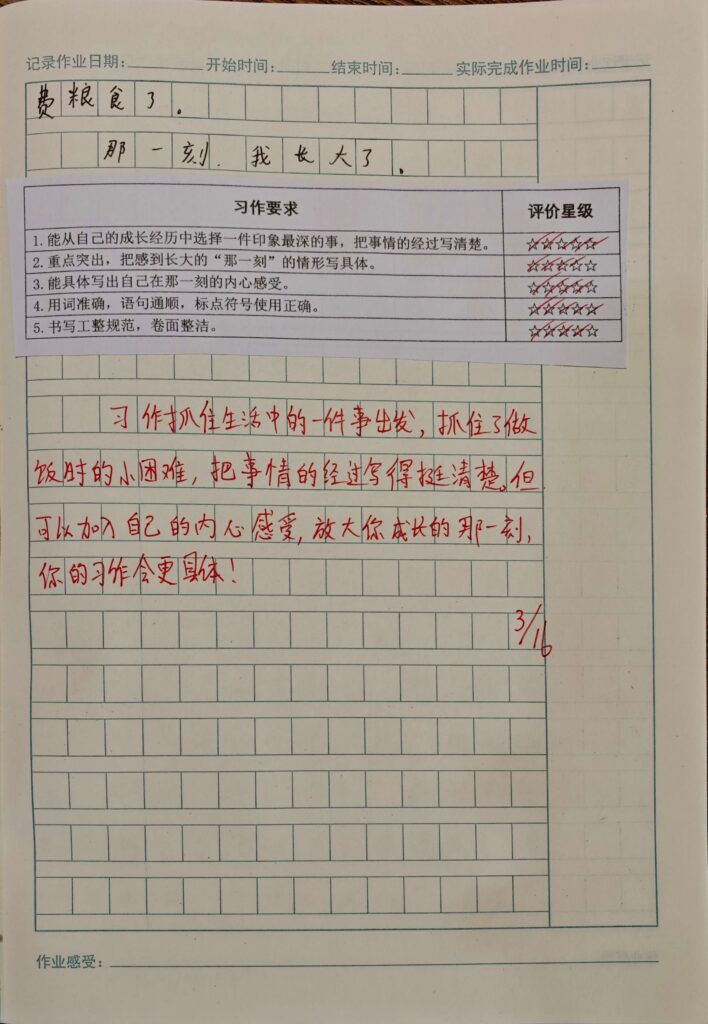 记录作业日期：________ 开始时间：______ 结束时间：______ 实际完成作业时间：______
费粮食了。
那一刻，我长大了。
习作要求 评价星级
1.能从自己的成长经历中选择一件印象最深的事，把事情的经过写清楚。 ☆☆☆☆☆
2.重点突出，把感到长大的“那一刻”的情形写具体。 ☆☆☆☆☆
3.能具体写出自己在那一刻的内心感受。 ☆☆☆☆☆
4.用词准确，语句通顺，标点符号使用正确。 ☆☆☆☆☆
5.书写工整规范，卷面整洁。 ☆☆☆☆☆
习作抓住生活中的一件事出发，抓住了做
饭时的小困难，把事情的经过写得挺清楚。但
可以加入自己的内心感受，放大你成长的那一刻，
你的习作会更具体！
3/16
作业感受：